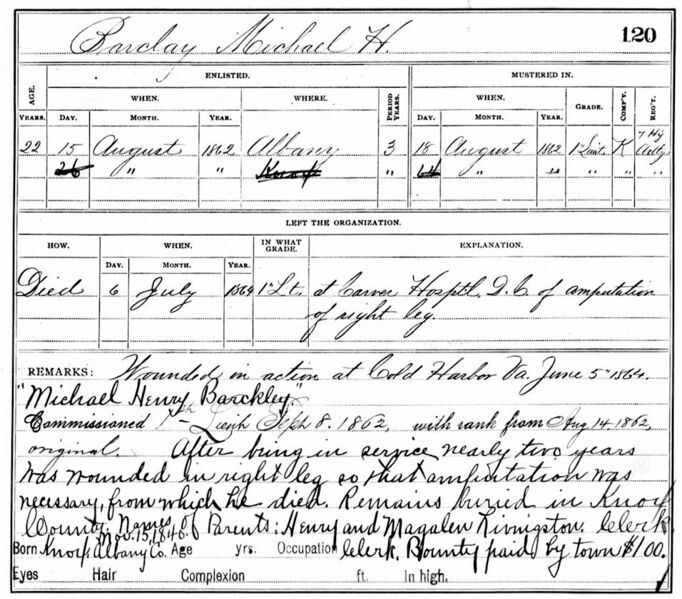 Barclay Michael H. 120
ENLISTED. MUSTERED IN.
AGE. WHEN. WHERE. PERIOD YEARS. WHEN. GRADE. COMP'Y. REG'T.
YEARS. DAY. MONTH. YEAR. DAY. MONTH. YEAR.
22 15 August 1862 Albany 3 18 August 1862 1" Lieut. K 7 Hy Arty
26 " " Knox " " " " " "
LEFT THE ORGANIZATION.
HOW. WHEN. IN WHAT GRADE. EXPLANATION.
DAY. MONTH. YEAR.
Died 6 July 1864 1" Lt. at Carver Hosptl, D.C. of amputation
of right leg.
REMARKS: Wounded in action at Cold Harbor Va. June 5" 1864.
"Michael Henry Barckley."
Commissioned Lieut Sept 8. 1862, with rank from Aug 14. 1862,
original. After being in service nearly two years
was wounded in right leg so that amputation was
necessary, from which he died. Remains buried in Knox
County. Names of Parents: Henry and Magalen Livingston. Clerk.
Nov. 15, 1840.
Born Knox, Albany Co. Age yrs. Occupation Clerk. Bounty paid by town $100.
Eyes Hair Complexion ft. in high.